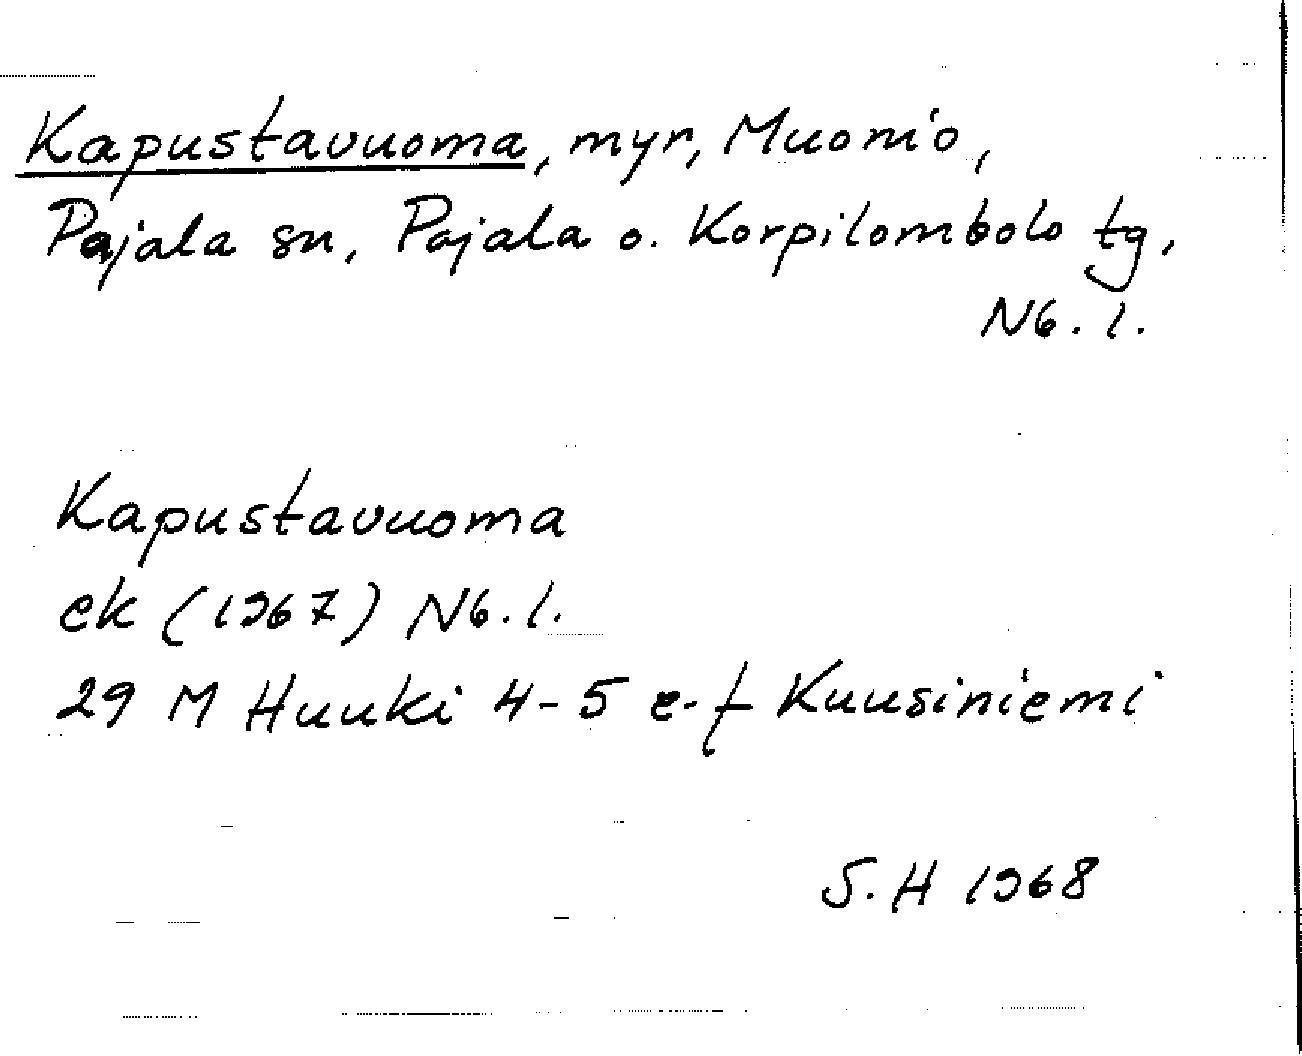 Kapustavuoma, myr, Muonio,
Pajala sn, Pajala o. Korpilombolo tg,
Nb. l.
Kapustavuoma
ek (1967) Nb. l.
29 M Huuki 4-5 e-f Kuusiniemi
S. H 1968